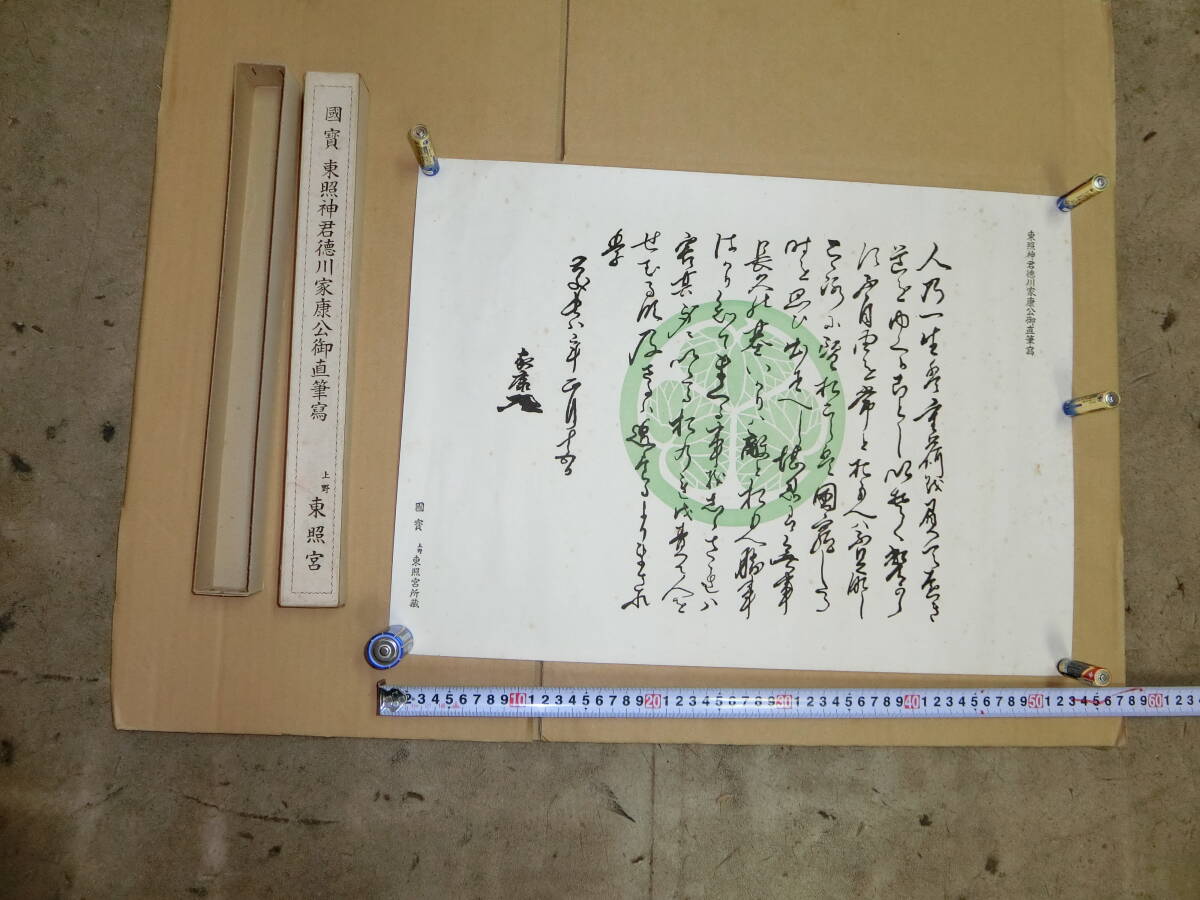 國寶 東照神君德川家康公御直筆寫
上野 東照宮
東照神君德川家康公御直筆寫
人乃一生は重荷を負て遠き
道をゆくかことしいそくへから
す不自由を常とおもへは不足なし
こゝろに望おこらは困窮したる
時を思ひ出すへし堪忍は無事
長久の基いかりは敵とおもへ勝事
はかり知てまくる事をしらされは
害其身にいたるおのれを責て人を
せむるな及さるは過たるよりまされ
り
慶長八年正月十五日
家康
國寶 上野 東照宮所藏
2 3 4 5 6 7 8 9 10 1 2 3 4 5 6 7 8 9 20 1 2 3 4 5 6 7 8 9 30 1 2 3 4 5 6 7 8 9 40 1 2 3 4 5 6 7 8 9 50 1 2 3 4 5 6 7 8 9 60 1 2 3